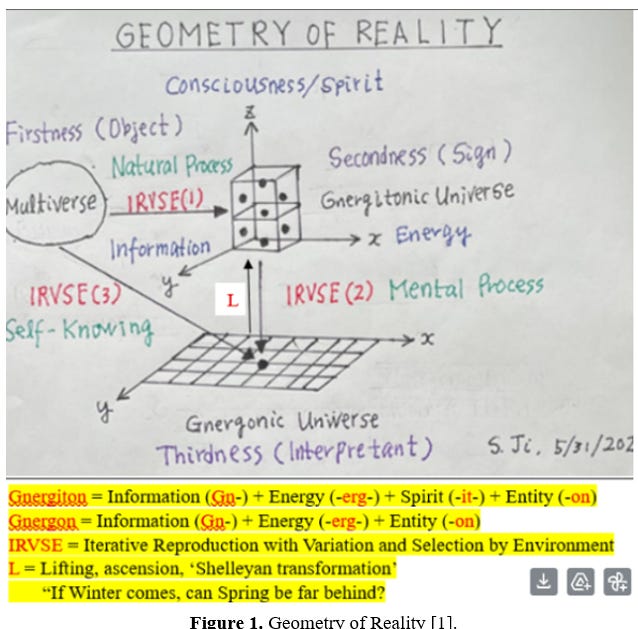 GEOMETRY OF REALITY
Consciousness/Spirit
z
Firstness (Object)
Natural Process
Secondness (Sign)
Multiverse
IRVSE(1)
Gnergitonic Universe
x Energy
Information
y
IRVSE(3)
L
IRVSE(2) Mental Process
Self-Knowing
x
y
Gnergonic Universe
Thirdness (Interpretant)
S. Ji, 5/31/202
Gnergiton = Information (Gn-) + Energy (-erg-) + Spirit (-it-) + Entity (-on)
Gnergon = Information (Gn-) + Energy (-erg-) + Entity (-on)
IRVSE = Iterative Reproduction with Variation and Selection by Environment
L = Lifting, ascension, ‘Shelleyan transformation’
“If Winter comes, can Spring be far behind?
Figure 1. Geometry of Reality [1].